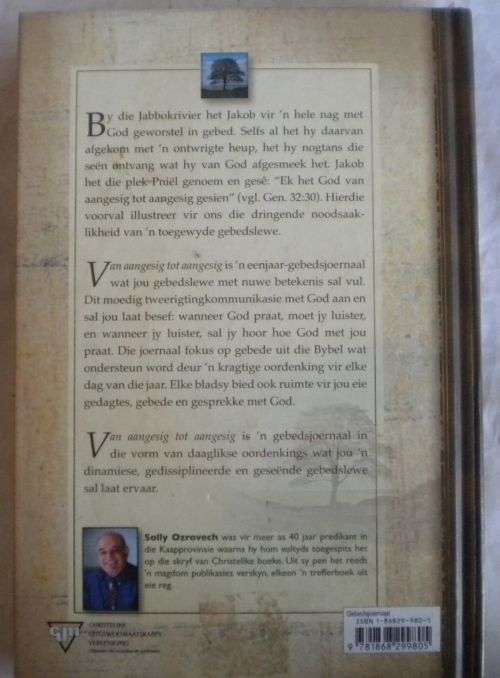 By die Jabbokrivier het Jakob vir 'n hele nag met
God geworstel in gebed. Selfs al het hy daarvan
afgekom met 'n ontwrigte heup, het hy nogtans die
seën ontvang wat hy van God afgesmeek het. Jakob
het die plek Pniël genoem en gesê: "Ek het God van
aangesig tot aangesig gesien" (vgl. Gen. 32:30). Hierdie
voorval illustreer vir ons die dringende noodsaak-
likheid van 'n toegewyde gebedslewe.
Van aangesig tot aangesig is 'n eenjaar-gebedsjoernaal
wat jou gebedslewe met nuwe betekenis sal vul.
Dit moedig tweerigtingkommunikasie met God aan en
sal jou laat besef: wanneer God praat, moet jy luister,
en wanneer jy luister, sal jy hoor hoe God met jou
praat. Die joernaal fokus op gebede uit die Bybel wat
ondersteun word deur 'n kragtige oordenking vir elke
dag van die jaar. Elke bladsy bied ook ruimte vir jou eie
gedagtes, gebede en gesprekke met God.
Van aangesig tot aangesig is 'n gebedsjoernaal in
die vorm van daaglikse oordenkings wat jou 'n
dinamiese, gedissiplineerde en geseënde gebedslewe
sal laat ervaar.
Solly Ozrovech was vir meer as 40 jaar predikant in
die Kaapprovinsie waarna hy hom voltyds toegespits het
op die skryf van Christelike boeke. Uit sy pen het reeds
'n magdom publikasies verskyn, elkeen 'n trefferboek uit
eie reg.
CHRISTELIKE
UITGEWERSMAATSKAPPY
VEREENIGING
Gebedsjoernaal
ISBN 1-86829-980-5
9 781868 299805